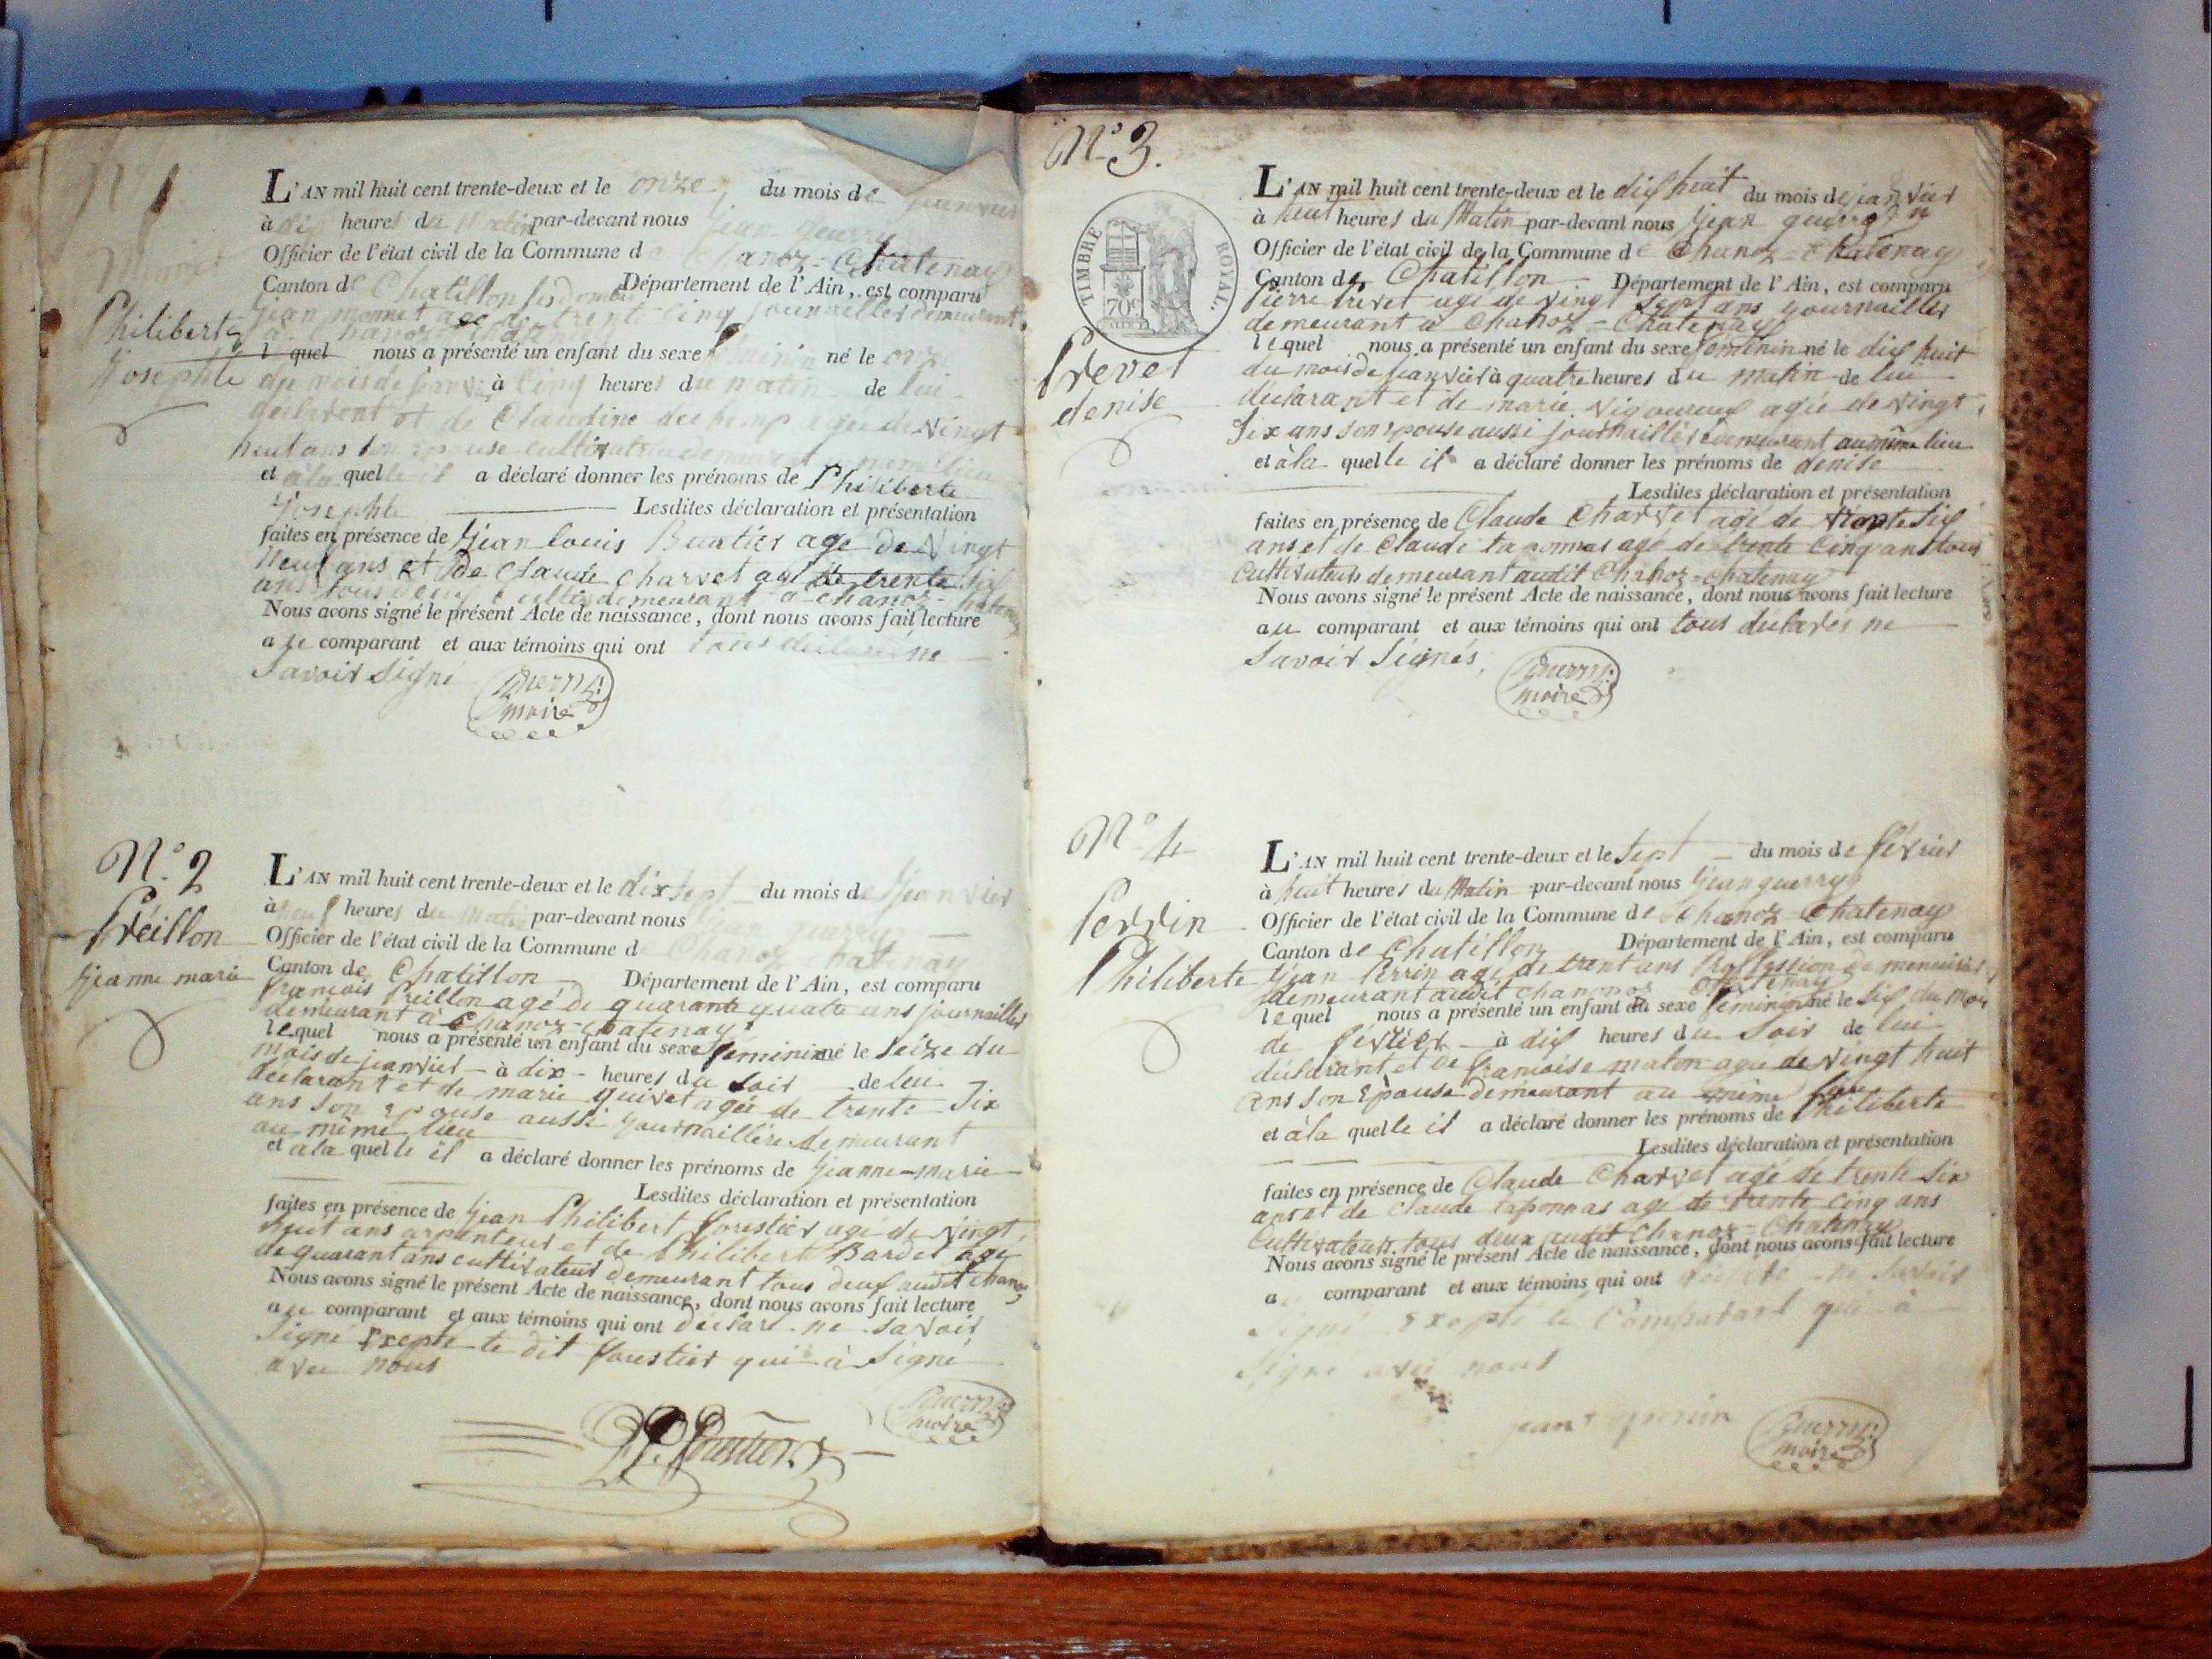 N° 1
Philiberte
Josephte
L'AN mil huit cent trente-deux et le onze du mois de janvier
à dix heures du Matin par-devant nous jean guerry
Officier de l'état civil de la Commune de Chanoz=Chatenay
Canton de Chatillon les dombes Département de l'Ain, est comparu
jean monnet agé de trente cinq journallier demeurant
à Chanoz
l quel nous a présenté un enfant du sexe féminin né le onze
du mois de janvier à cinq heures du matin de lui
déclarent et de Claudine dechamp agée de vingt
huit ans son epouse cultivatrice demeurant au meme lieu
et à la quelle il a déclaré donner les prénoms de Philiberte
Josephte Lesdites déclaration et présentation
faites en présence de jean louis Buatier agé de vingt
neuf ans et de Claude Charvet agé de trente six
ans tous deux cultiv demeurant a Chanoz=Chatenay
Nous avons signé le présent Acte de naissance, dont nous avons fait lecture
au comparant et aux témoins qui ont tous declaré ne
Savoir signé
guerry
maire
N° 2
Préillon
jeanne marie
L'AN mil huit cent trente-deux et le dix sept du mois de janvier
à neuf heures du matin par-devant nous jean guerry
Officier de l'état civil de la Commune de Chanoz Chatenay
Canton de Chatillon Département de l'Ain, est comparu
francois Preillon agé de quarante quatre ans journallier
demeurant à Chanoz=chatenay
lequel nous a présenté un enfant du sexe féminin né le seize du
mois de janvier - à dix - heures du soir de lui
declarant et de marie guivet agée de trente Six
ans son epouse aussi journaillère demeurant
au même lieu
et à la quelle il a déclaré donner les prénoms de jeanne=marie
Lesdites déclaration et présentation
faites en présence de jean Philibert forestier agé de vingt
huit ans arpenteur et de Philibert Bardet agé
de quarant ans cultivateur demeurant tous deux audit chanoz
Nous avons signé le présent Acte de naissance, dont nous avons fait lecture
au comparant et aux témoins qui ont déclaré ne savoir
signe Exepté le dit forestier qui à signé
avec nous
guerry
maire
N° 3.
TIMBRE ROYAL.
70c
Prevet
denise
L'AN mil huit cent trente-deux et le dix huit du mois de janvier
à huit heures du Matin par-devant nous jean guerry
Officier de l'état civil de la Commune de Chanoz=Chatenay
Canton de Chatillon Département de l'Ain, est comparu
Pierre Prevet agé de vingt sept ans journaillier
demeurant à Chanoz=Chatenay
lequel nous a présenté un enfant du sexe féminin né le dix huit
du mois de janvier à quatre heures du matin de lui
déclarant et de marie Vigoureux agée de vingt
Six ans son epouse aussi journaillère demeurant au même lieu
et à la quelle il a déclaré donner les prénoms de denise
Lesdites déclaration et présentation
faites en présence de Claude Charvet agé de trente Six
ans et de Claude taponnas agé de trente cinq ans tous
Cultivateurs demeurant audit Chanoz=Chatenay
Nous avons signé le présent Acte de naissance, dont nous avons fait lecture
au comparant et aux témoins qui ont tous déclarés ne
Savoir Signés
guerry
maire
N° 4
Perrin
Philiberte
L'AN mil huit cent trente-deux et le sept du mois de février
à huit heures du Matin par-devant nous jean guerry
Officier de l'état civil de la Commune de Chanoz=Chatenay
Canton de Chatillon Département de l'Ain, est comparu
jean Perrin agé de trent ans Proffession de menuisier
demeurant audit chanoz Chatenay
lequel nous a présenté un enfant du sexe féminin né le six du moi
de février à dix heures du soir de lui
déclarant et de francoise maton agée de vingt huit
ans son Epouse demeurant au même lieu
et à la quelle il a déclaré donner les prénoms de Philiberte
Lesdites déclaration et présentation
faites en présence de Claude Charvet agé de trente Six
ans et de Claude taponnas agé de trente cinq ans
Cultivateurs tous deux audit Chanoz=Chatenay
Nous avons signé le présent Acte de naissance, dont nous avons fait lecture
a comparant et aux témoins qui ont déclaré ne savoir
signé Exepté le Comparant qui à
signe avec nous
jean perrin
guerry
maire